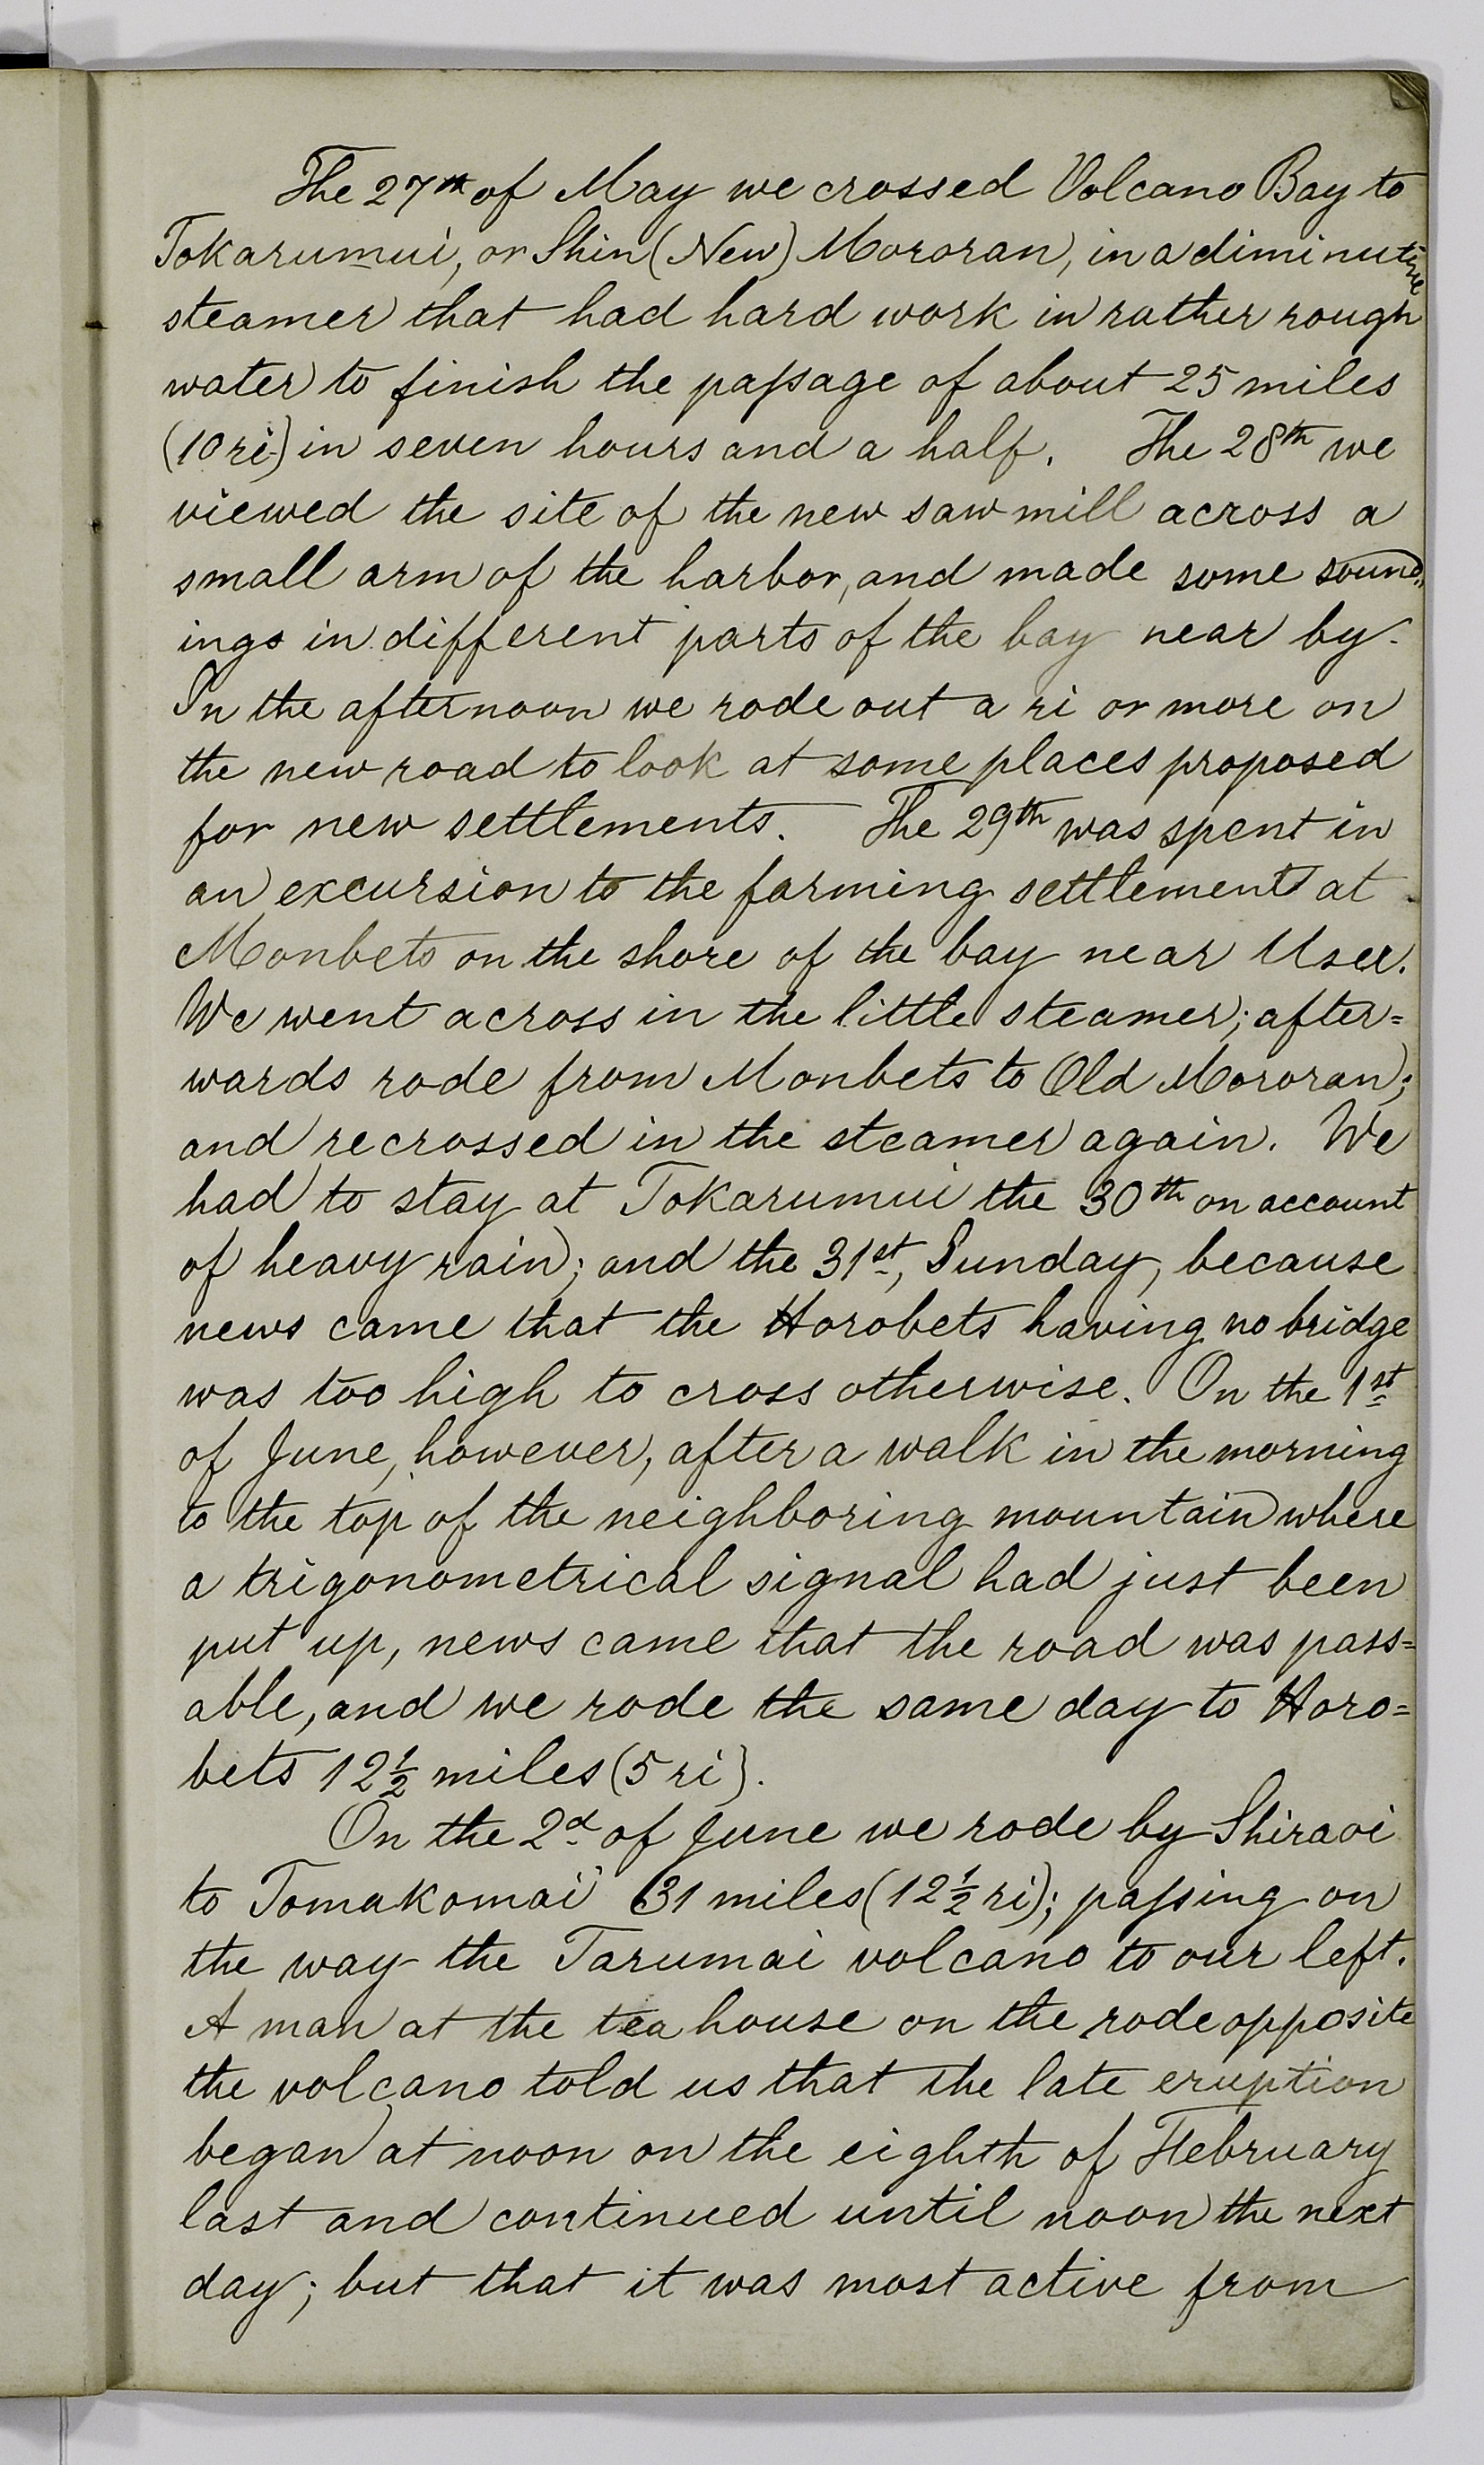 The 27th of May we crossed Volcano Bay to
Tokarumui, or Shin (New) Mororan, in a diminutive
steamer that had hard work in rather rough
water to finish the passage of about 25 miles
(10 ri) in seven hours and a half. The 28th we
viewed the site of the new saw mill across a
small arm of the harbor, and made some sound-
ings in different parts of the bay near by.
In the afternoon we rode out a ri or more on
the new road to look at some places proposed
for new settlements. The 29th was spent in
an excursion to the farming settlement at
Monbets on the shore of the bay near Usu.
We went across in the little steamer; after=
wards rode from Monbets to Old Mororan;
and recrossed in the steamer again. We
had to stay at Tokarumui the 30th on account
of heavy rain; and the 31st, Sunday, because
news came that the Horobets having no bridge
was too high to cross otherwise. On the 1st
of June, however, after a walk in the morning
to the top of the neighboring mountain where
a trigonometrical signal had just been
put up, news came that the road was pass=
able, and we rode the same day to Horo=
bets 12½ miles (5 ri).
On the 2d of June we rode by Shiraoi
to Tomakomai 31 miles (12½ ri); passing on
the way the Tarumai volcano to our left.
A man at the tea house on the rode opposite
the volcano told us that the late eruption
began at noon on the eighth of February
last and continued until noon the next
day; but that it was most active from